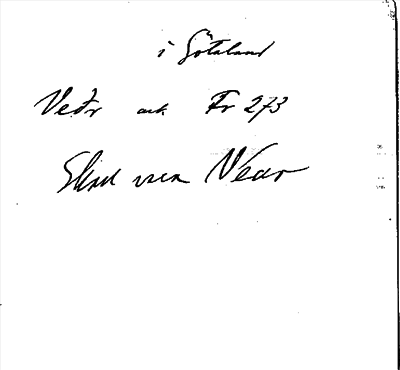 i Götaland
Veðr och Fr 273
Skul vara Vear